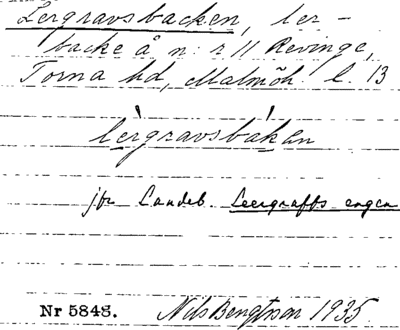 Lergravsbacken, ler-
backe å n:r 11 Revinge,
Torna hd, Malmöh. l. 13
lèrgravsbákęn
jfr Landeb. Leergraffs engen
Nr 5848. Nils Bengtson 1935.